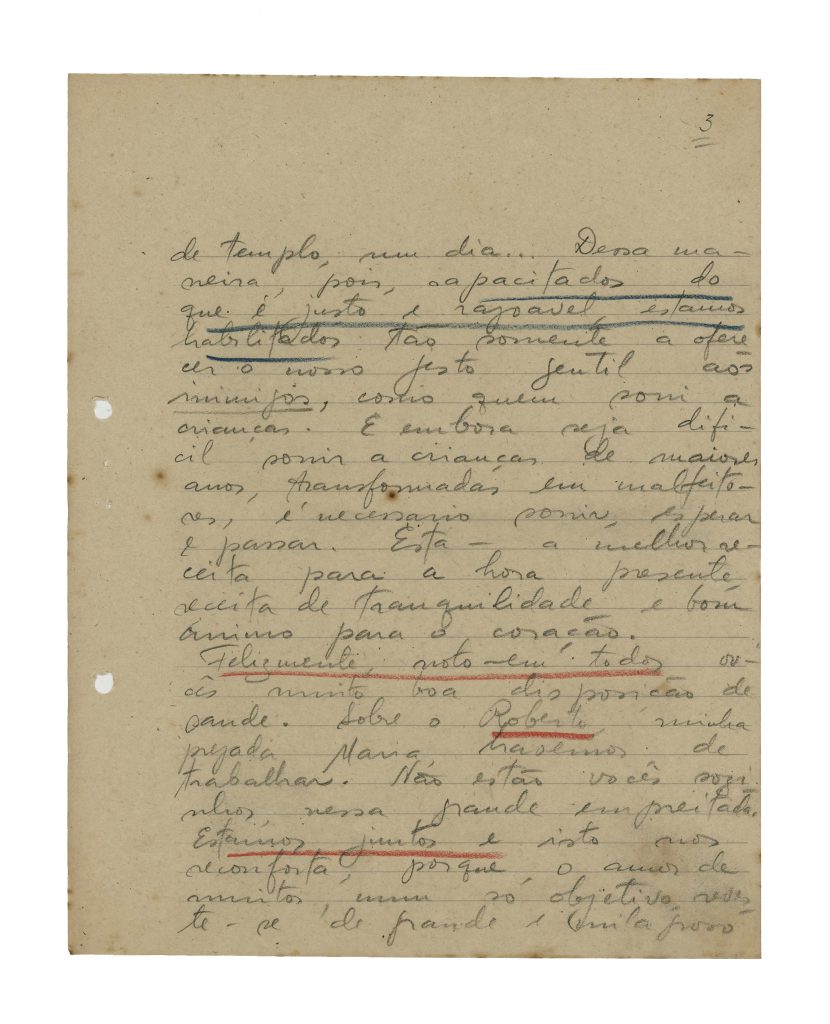 3
de templo, um dia... Dessa ma-
neira, pois, capacitados do
que é justo e razoavel, estamos
habilitados tão somente a ofere
cer o nosso gesto gentil aos
inimigos, como quem sorri a
crianças. E embora seja difi-
cil sorrir a crianças de maiores
anos, transformadas em malfeito-
res, é necessario sorrir, esperar
e passar. Esta - a melhor re-
ceita para a hora presente,
receita de tranquilidade e bom
animo para o coração.
Felizmente, noto em todos vo-
cês muito boa disposição de
saude. Sobre o Roberto, minha
prezada Maria havemos de
trabalhar. Não estão vocês sozi
nhos, nessa grande empreitada.
Estamos juntos e isto nos
reconforta, porque, o amor de
muitos, num só objetivo, reves
te-se de grande e milagroso